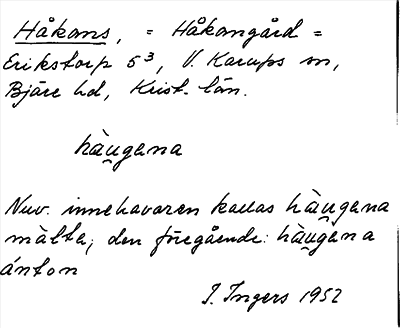 Håkans, = Håkangård =
Erikstorp 5³, V. Karups sn,
Bjäre hd, Krist. län.
hàu̯gana
Nuv. innehavaren kallas hàu̯gana
màlta; den föregående: hàu̯gàna
ánton
I. Ingers 1952